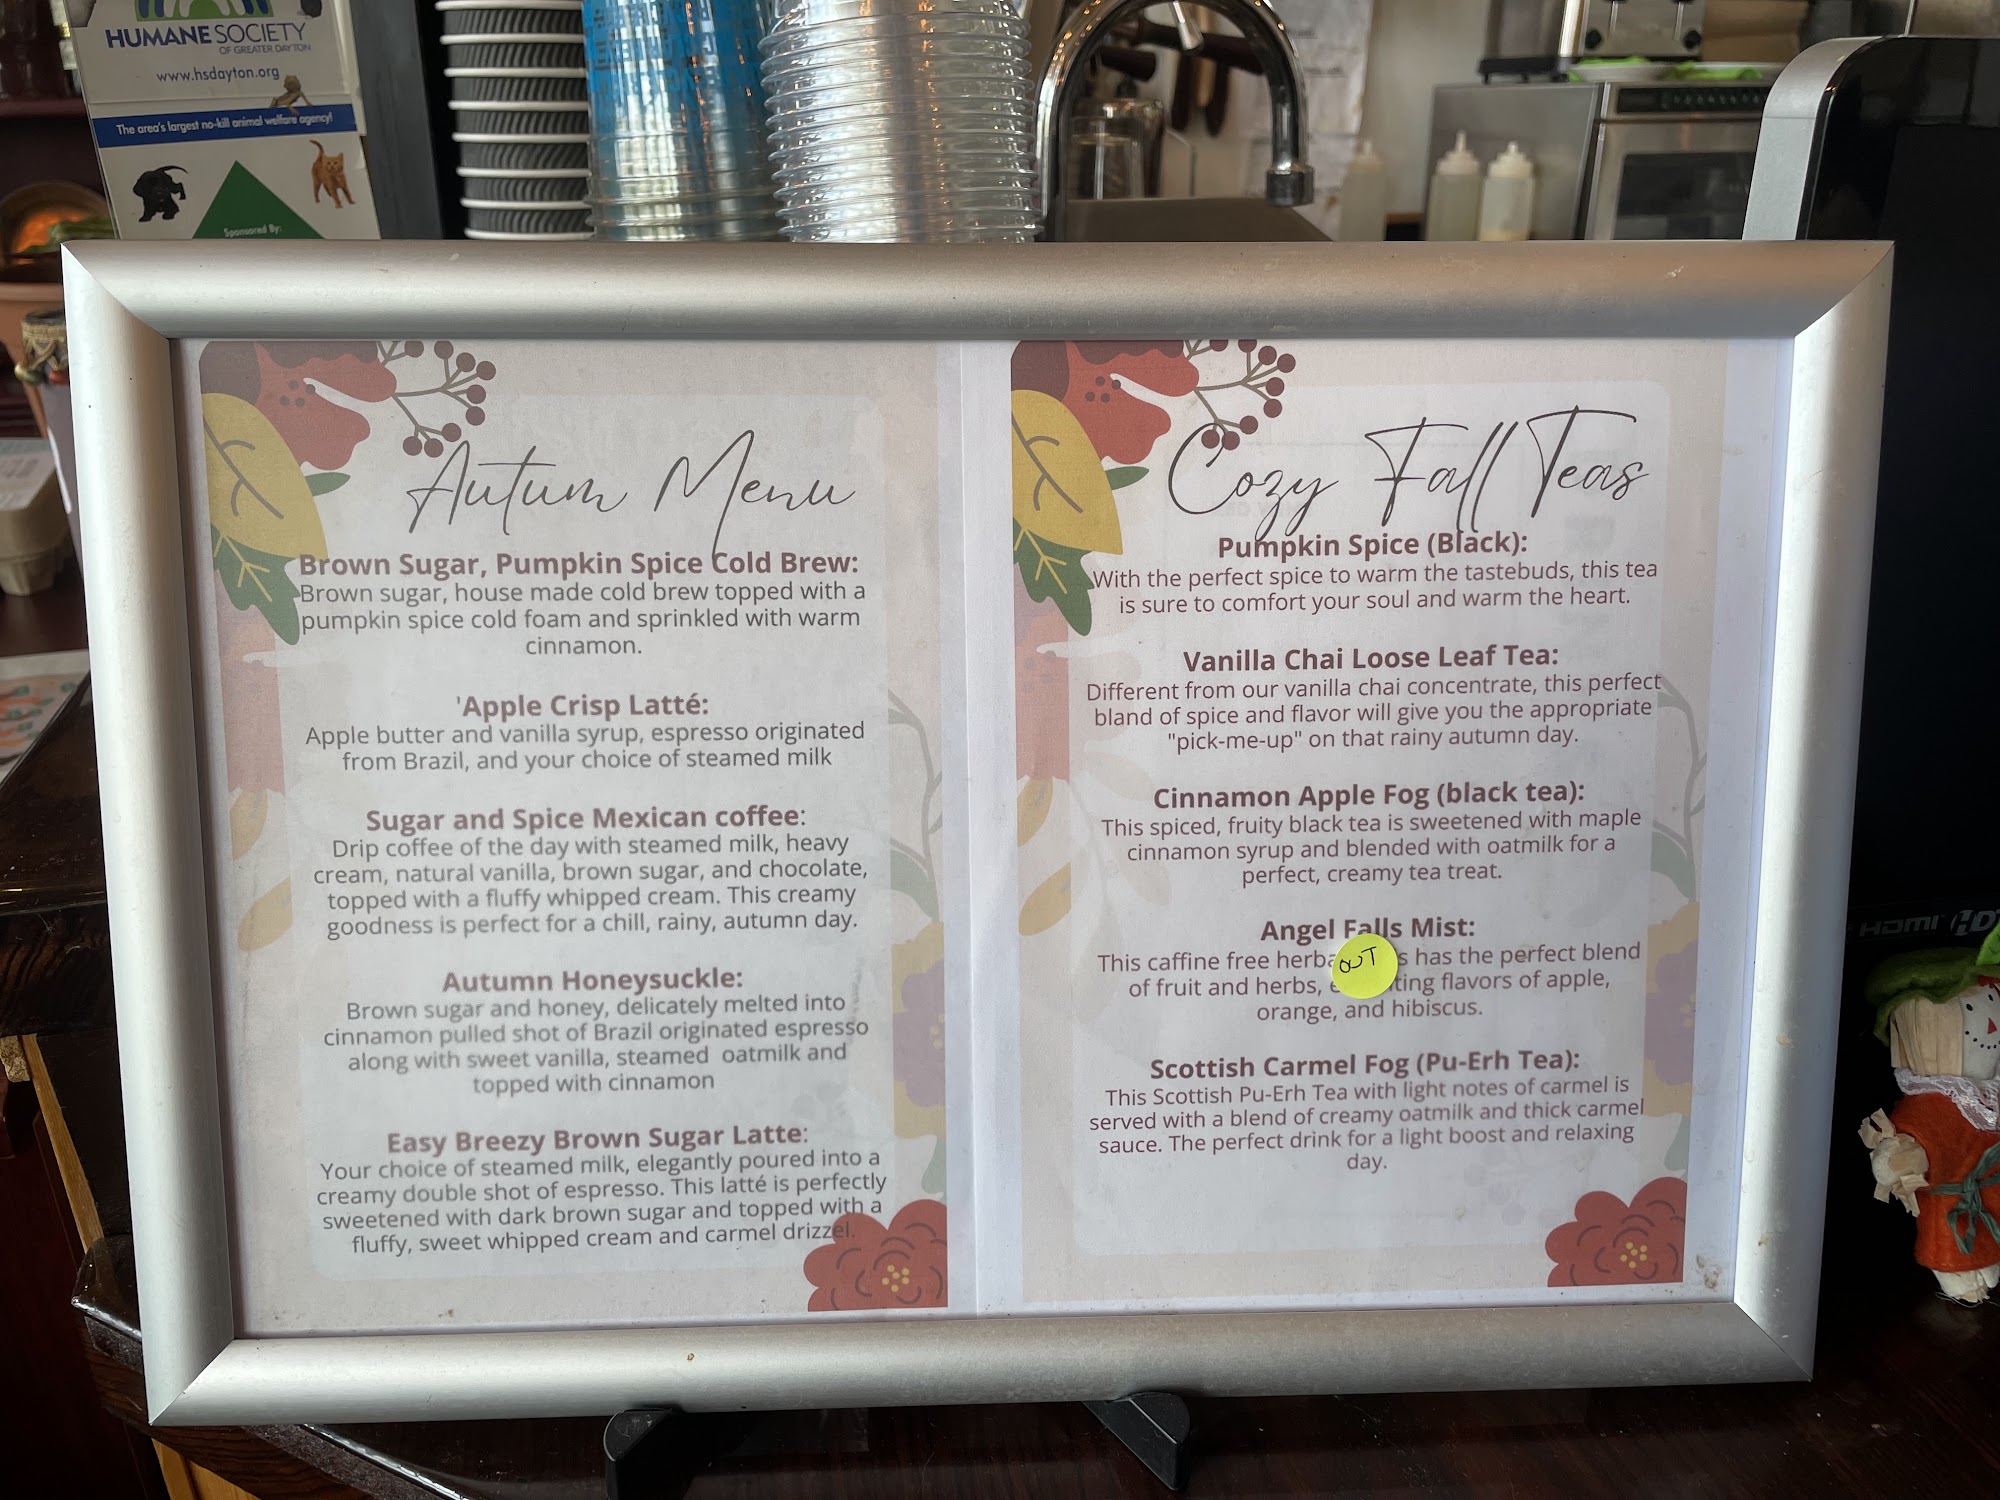 HUMANE SOCIETY
OF GREATER DAYTON
www.hsdayton.org
The area's largest no-kill animal welfare agency!
Sponsored By:
Autum Menu
Brown Sugar, Pumpkin Spice Cold Brew:
Brown sugar, house made cold brew topped with a
pumpkin spice cold foam and sprinkled with warm
cinnamon.
'Apple Crisp Latté:
Apple butter and vanilla syrup, espresso originated
from Brazil, and your choice of steamed milk
Sugar and Spice Mexican coffee:
Drip coffee of the day with steamed milk, heavy
cream, natural vanilla, brown sugar, and chocolate,
topped with a fluffy whipped cream. This creamy
goodness is perfect for a chill, rainy, autumn day.
Autumn Honeysuckle:
Brown sugar and honey, delicately melted into
cinnamon pulled shot of Brazil originated espresso
along with sweet vanilla, steamed oatmilk and
topped with cinnamon
Easy Breezy Brown Sugar Latte:
Your choice of steamed milk, elegantly poured into a
creamy double shot of espresso. This latté is perfectly
sweetened with dark brown sugar and topped with a
fluffy, sweet whipped cream and carmel drizzel.
Cozy Fall Teas
Pumpkin Spice (Black):
With the perfect spice to warm the tastebuds, this tea
is sure to comfort your soul and warm the heart.
Vanilla Chai Loose Leaf Tea:
Different from our vanilla chai concentrate, this perfect
bland of spice and flavor will give you the appropriate
"pick-me-up" on that rainy autumn day.
Cinnamon Apple Fog (black tea):
This spiced, fruity black tea is sweetened with maple
cinnamon syrup and blended with oatmilk for a
perfect, creamy tea treat.
Angel Falls Mist:
This caffine free has the perfect blend
OUT
of fruit and herbs, flavors of apple,
orange, and hibiscus.
Scottish Carmel Fog (Pu-Erh Tea):
This Scottish Pu-Erh Tea with light notes of carmel is
served with a blend of creamy oatmilk and thick carmel
sauce. The perfect drink for a light boost and relaxing
day.
HDMI